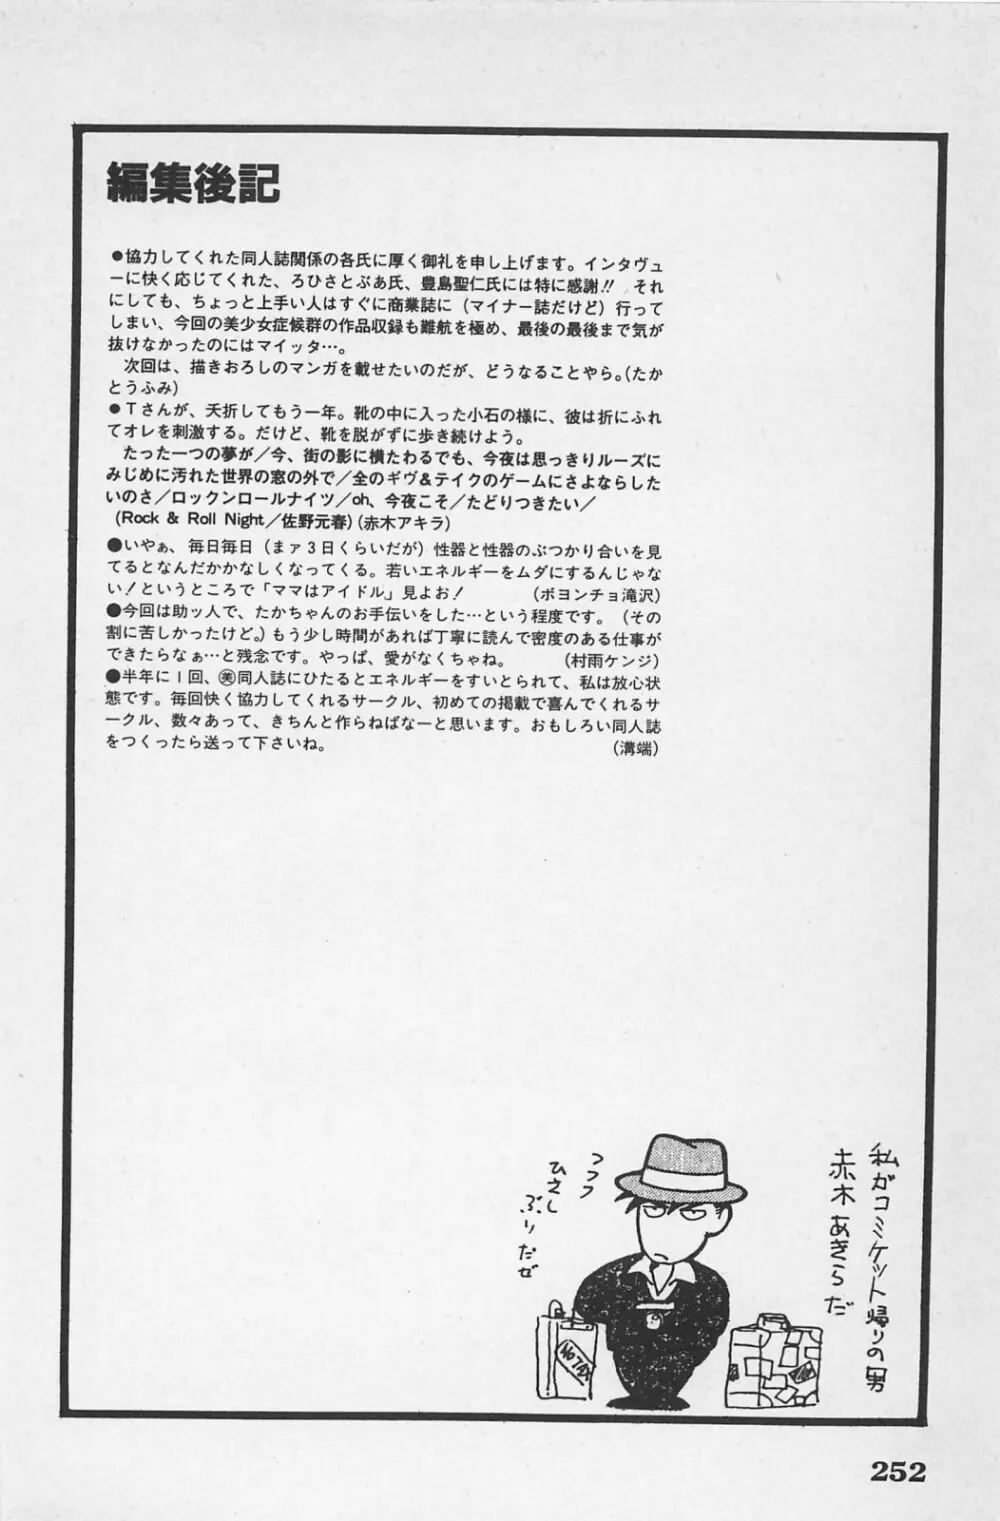 編集後記
●協力してくれた同人誌関係の各氏に厚く御礼を申し上げます。インタヴュ
ーに快く応じてくれた、ろひさとぷあ氏、豊島聖仁氏には特に感謝!! それ
にしても、ちょっと上手い人はすぐに商業誌に（マイナー誌だけど）行って
しまい、今回の美少女症候群の作品収録も難航を極め、最後の最後まで気が
抜けなかったのにはマイッタ…。
　次回は、描きおろしのマンガを載せたいのだが、どうなることやら。（たか
とうふみ）
●Tさんが、夭折してもう一年。靴の中に入った小石の様に、彼は折にふれ
てオレを刺激する。だけど、靴を脱がずに歩き続けよう。
　たった一つの夢が／今、街の影に横たわるでも、今夜は思っきりルーズに
みじめに汚れた世界の窓の外で／全のギヴ&テイクのゲームにさよならした
いのさ／ロックンロールナイツ／oh、今夜こそ／たどりつきたい／
（Rock & Roll Night／佐野元春）（赤木アキラ）
●いやぁ、毎日毎日（まァ3日くらいだが）性器と性器のぶつかり合いを見
てるとなんだかかなしくなってくる。若いエネルギーをムダにするんじゃな
い！というところで「ママはアイドル」見よお！　（ポヨンチョ滝沢）
●今回は助ッ人で、たかちゃんのお手伝いをした…という程度です。（その
割に苦しかったけど。）もう少し時間があれば丁寧に読んで密度のある仕事が
できたらなぁ…と残念です。やっぱ、愛がなくちゃね。　（村雨ケンジ）
●半年に1回、㊤同人誌にひたるとエネルギーをすいとられて、私は放心状
態です。毎回快く協力してくれるサークル、初めての掲載で喜んでくれるサ
ークル、数々あって、きちんと作らねばなーと思います。おもしろい同人誌
をつくったら送って下さいね。　（溝端）
私がコミケット帰りの男
赤木あきらだ
フフフ
ひさし
ぶりだぜ
NO TAX
252